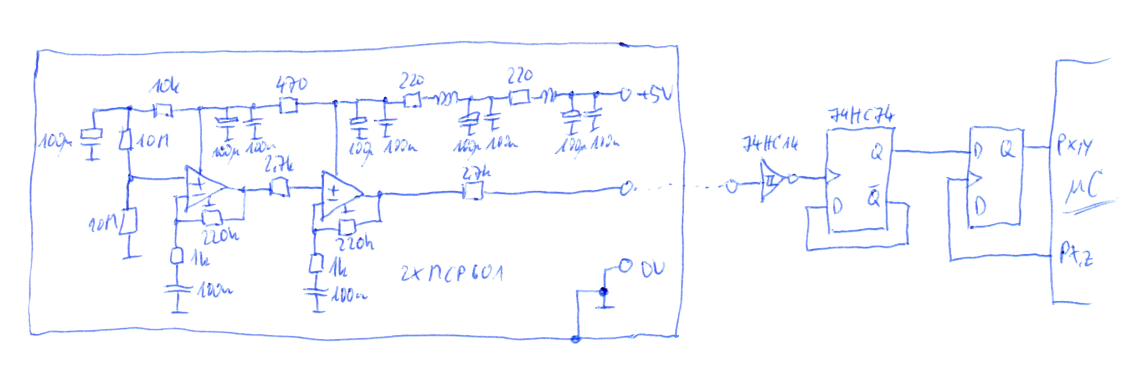 10k
470
220
220
+5V
100µ
10M
100µ
100n
100µ
100n
100µ
100n
100µ
100n
74HC14
74HC74
Q
D
Q
Px,y
2,7k
+
+
2,7k
µC
D
Q̅
D
10M
220k
220k
Px,z
1k
1k
0V
100n
100n
2xMCP601